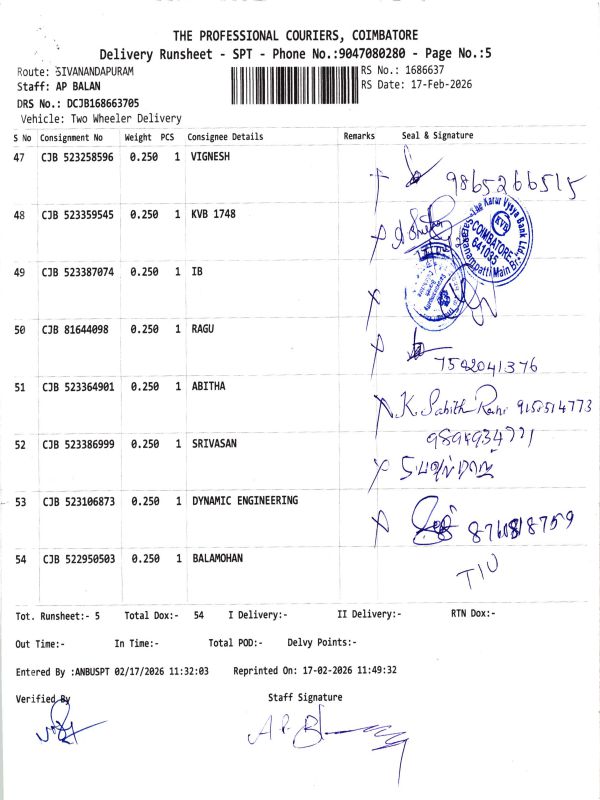 THE PROFESSIONAL COURIERS, COIMBATORE
Delivery Runsheet - SPT - Phone No.:9047080280 - Page No.:5
Route: SIVANANDAPURAM RS No.: 1686637
Staff: AP BALAN RS Date: 17-Feb-2026
DRS No.: DCJB168663705
Vehicle: Two Wheeler Delivery
S No Consignment No Weight PCS Consignee Details Remarks Seal & Signature
47 CJB 523258596 0.250 1 VIGNESH
9865266515
48 CJB 523359545 0.250 1 KVB 1748
The Karur Vysya Bank Ltd.
KVB
COIMBATORE
641035
Saravanampatti Main Br.
49 CJB 523387074 0.250 1 IB
50 CJB 81644098 0.250 1 RAGU
7502041376
51 CJB 523364901 0.250 1 ABITHA
K. Sabith Rani
9894934771
52 CJB 523386999 0.250 1 SRIVASAN
53 CJB 523106873 0.250 1 DYNAMIC ENGINEERING
54 CJB 522950503 0.250 1 BALAMOHAN
TIU
Tot. Runsheet:- 5 Total Dox:- 54 I Delivery:- II Delivery:- RTN Dox:-
Out Time:- In Time:- Total POD:- Delvy Points:-
Entered By :ANBUSPT 02/17/2026 11:32:03 Reprinted On: 17-02-2026 11:49:32
Verified By Staff Signature